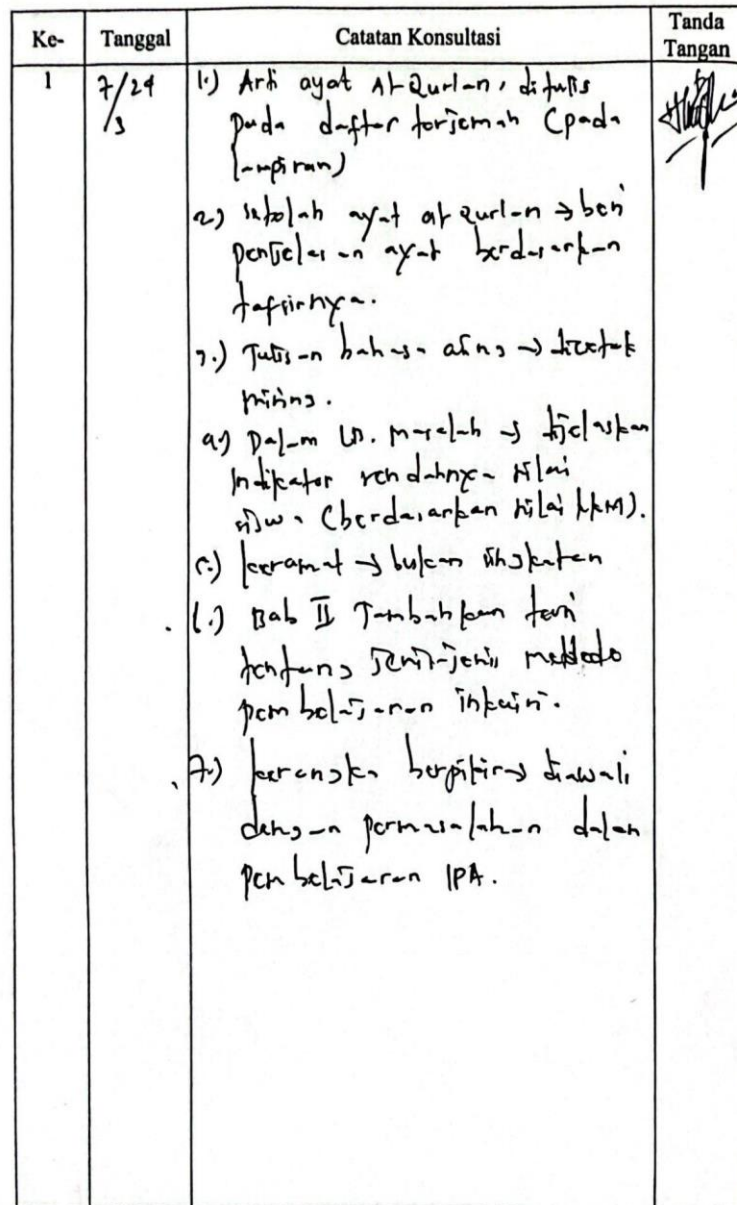 Ke- Tanggal Catatan Konsultasi Tanda Tangan
1 7/24
/3
1.) Arti ayat Al-Qur'an, ditulis
pada daftar terjemah (pada
lampiran)
2) setelah ayat al qur'an → beri
penjelasan ayat berdasarkan
tafsirnya.
3.) Tulisan bahasa asing → dicetak
miring.
4.) Dalam LB. masalah → dijelaskan
indikator rendahnya nilai
siswa (berdasarkan nilai KKM).
5.) keramat → bukan singkatan
6.) Bab II Tambahkan teori
tentang jenis-jenis metode
pembelajaran inkuiri.
7.) kerangka berpikir → diawali
dengan permasalahan dalam
pembelajaran IPA.